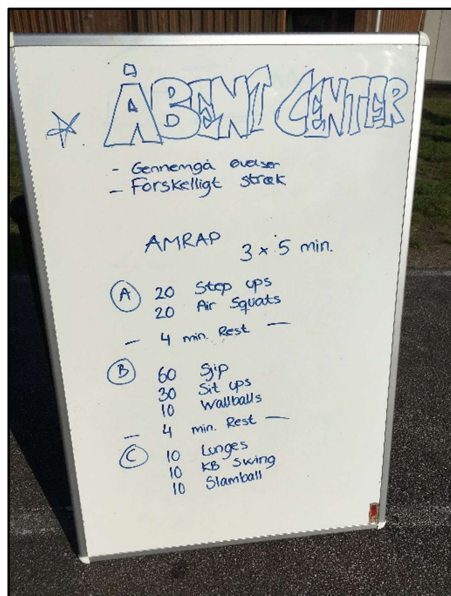 ÅBENT CENTER
- Gennemgå øvelser
- Forskelligt stræk
AMRAP 3 x 5 min.
A 20 Step ups
20 Air Squats
- 4 min. Rest -
B 60 Sjip
30 Sit ups
10 Wallballs
- 4 min. Rest -
C 10 Lunges
10 KB Swing
10 Slamball